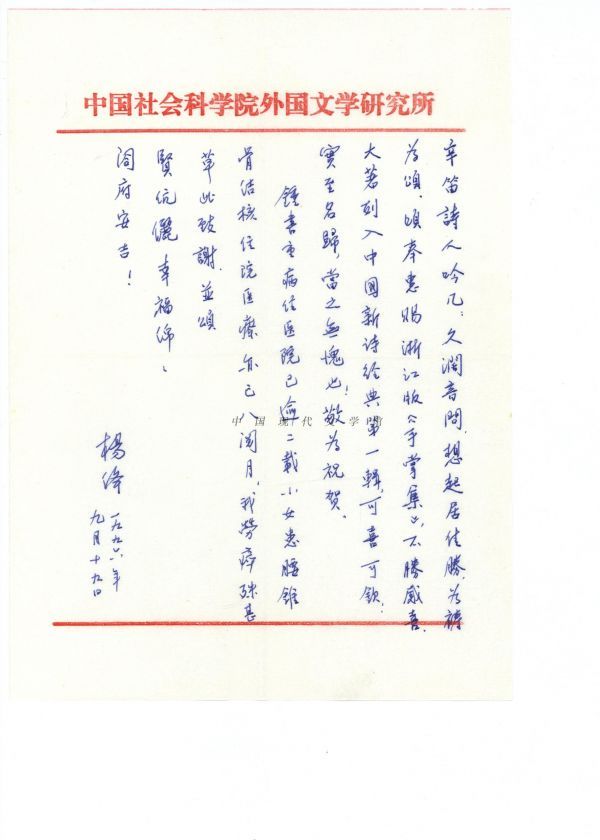 中国社会科学院外国文学研究所
辛笛詩人吟几：久濶音問，想起居佳勝，为禱
为頌。頃奉惠賜浙江版《手掌集》，不勝感喜。
大著列入中國新詩经典第一輯，可喜可欽！
實至名歸，當之無愧也！敬为祝贺。
鍾書重病住医院已逾二載，小女患腰錐
骨结核住院医療亦已八閲月，我勞瘁殊甚
草此致謝，並頌
賢伉儷幸福綿、
闔府安吉！
楊绛
一九九六年
九月十九日
中国现代文学馆